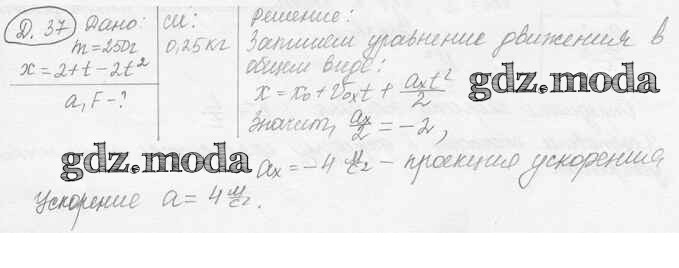 Д. 37
Дано:
m = 250г
x = 2 + t - 2t²
a, F - ?
СИ:
0,25 кг
Решение:
Запишем уравнение движения в
общем виде:
x = x₀ + v₀ₓt + aₓt²/2
gdz.moda
Значит, aₓ/2 = -2,
gdz.moda
aₓ = -4 м/с² - проекция ускорения
Ускорение a = 4 м/с².